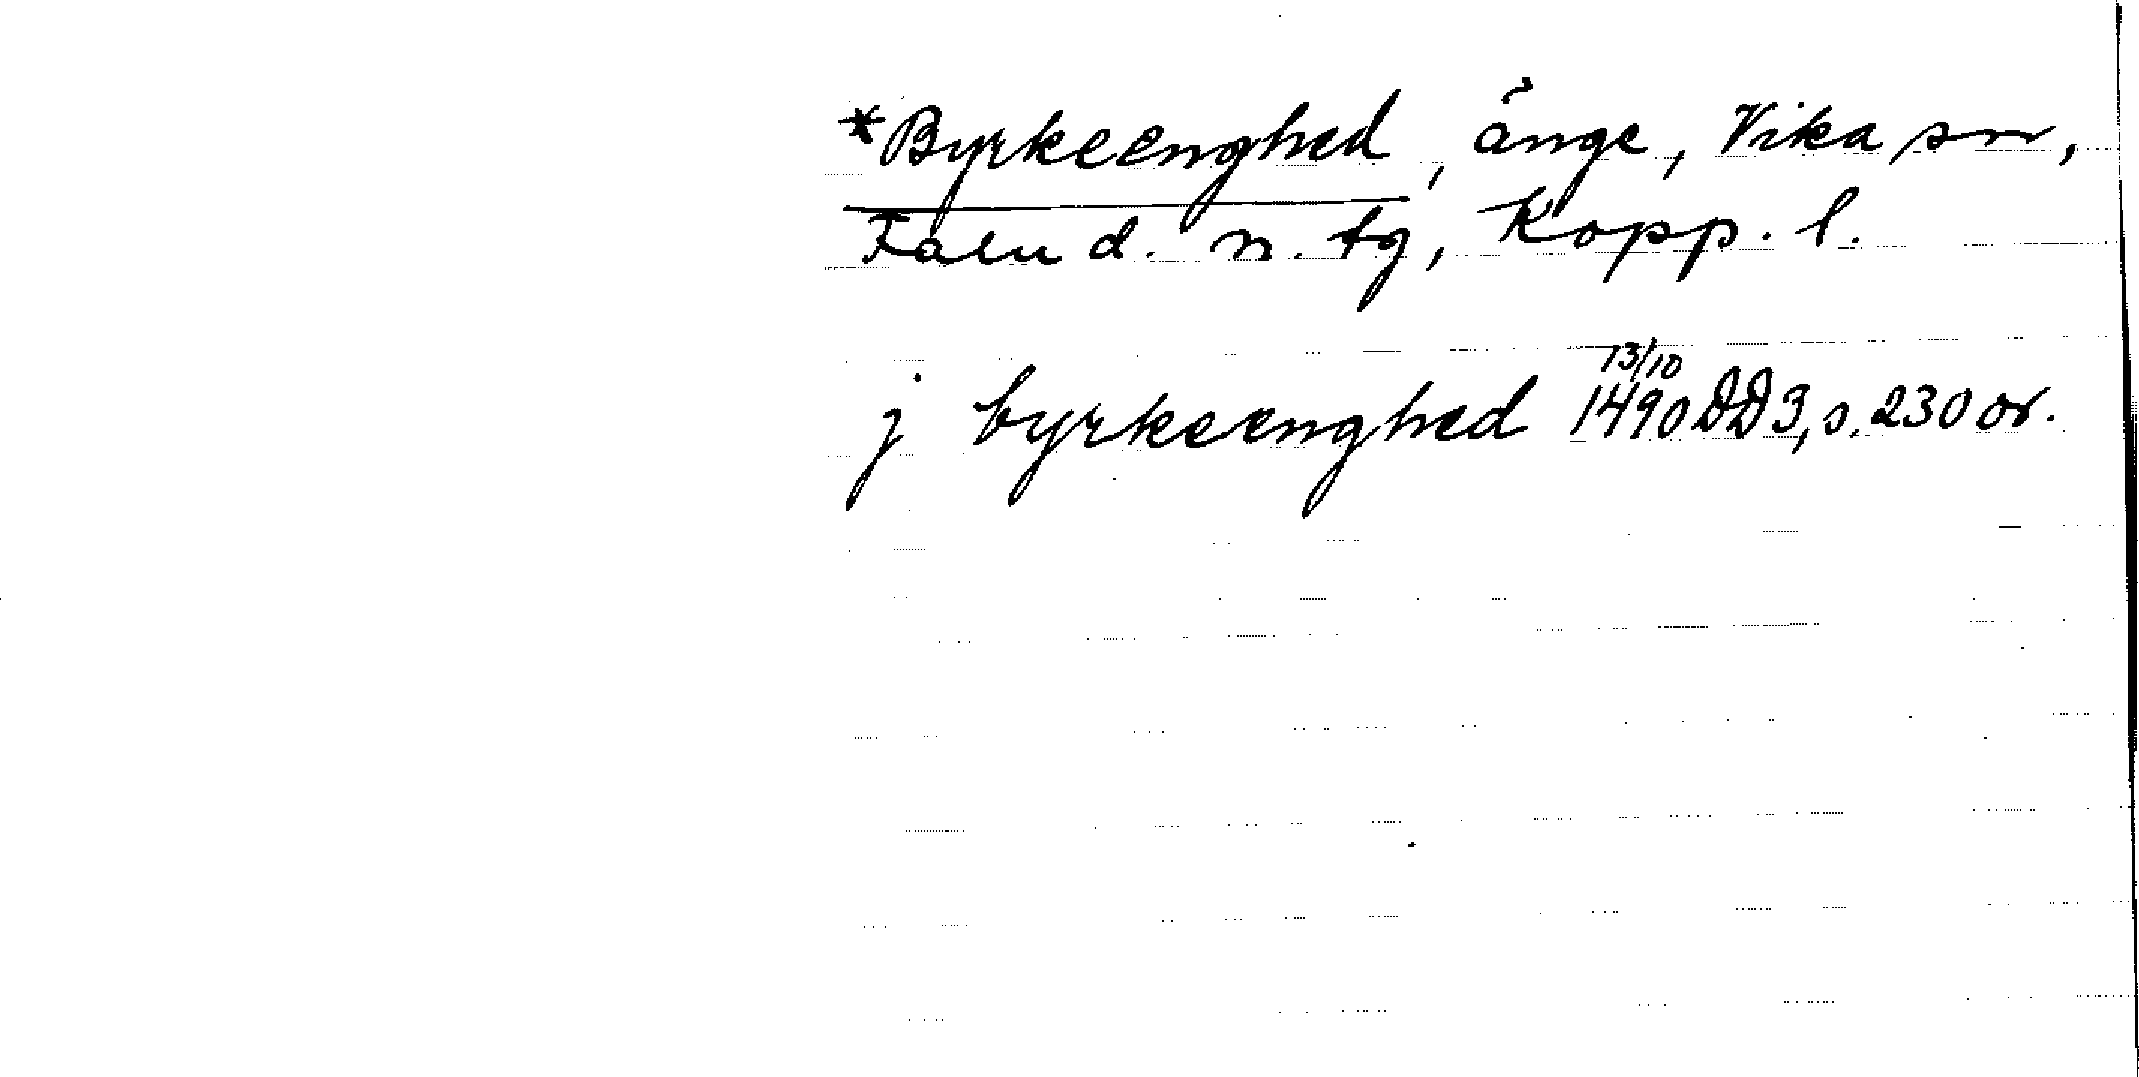 *Byrkeenghed, änge, Vika sn,
Falu d. n. tg, Kopp. l.
j byrkeenghed 13/10 1490 DD 3, s. 230 or.